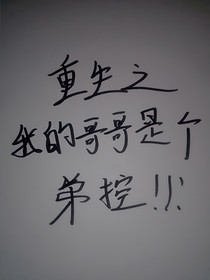 重生之
我的哥哥是个
弟控!!!